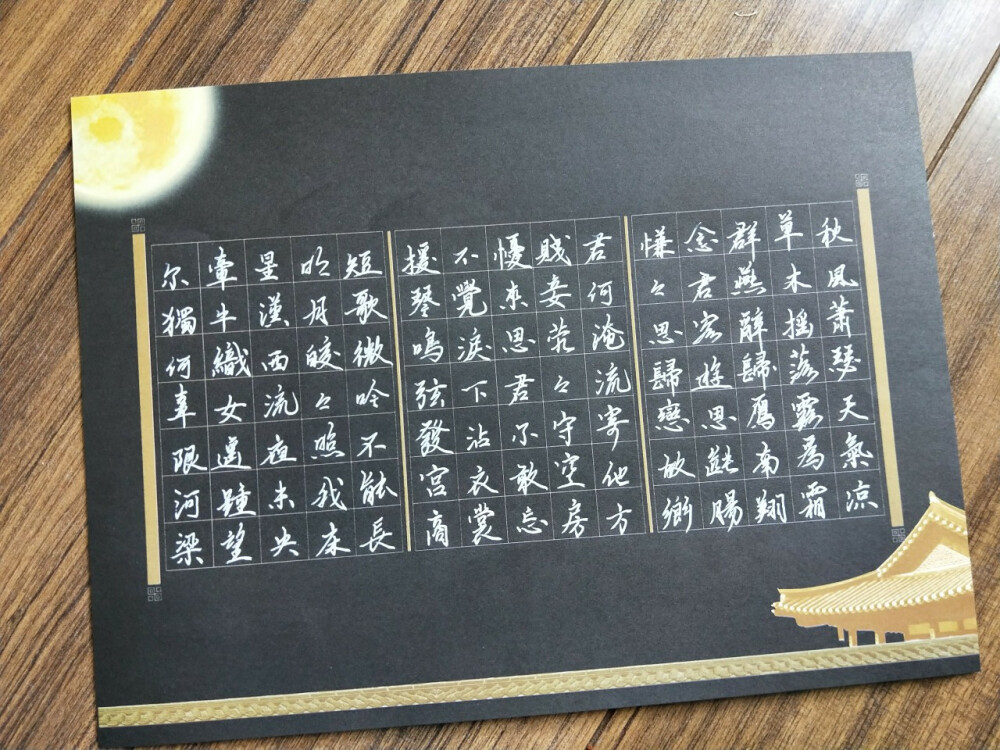 秋風蕭瑟天氣涼
草木摇落露爲霜
群燕辭歸鴈南翔
念君客遊思斷腸
慊々思歸戀故鄉
君何淹流寄他方
賤妾茕々守空房
憂來思君不敢忘
不覺淚下沾衣裳
援琴鳴弦發宮商
短歌微吟不能長
明月皎々照我床
星漢西流夜未央
牽牛織女遙望
尔獨何辜限河梁